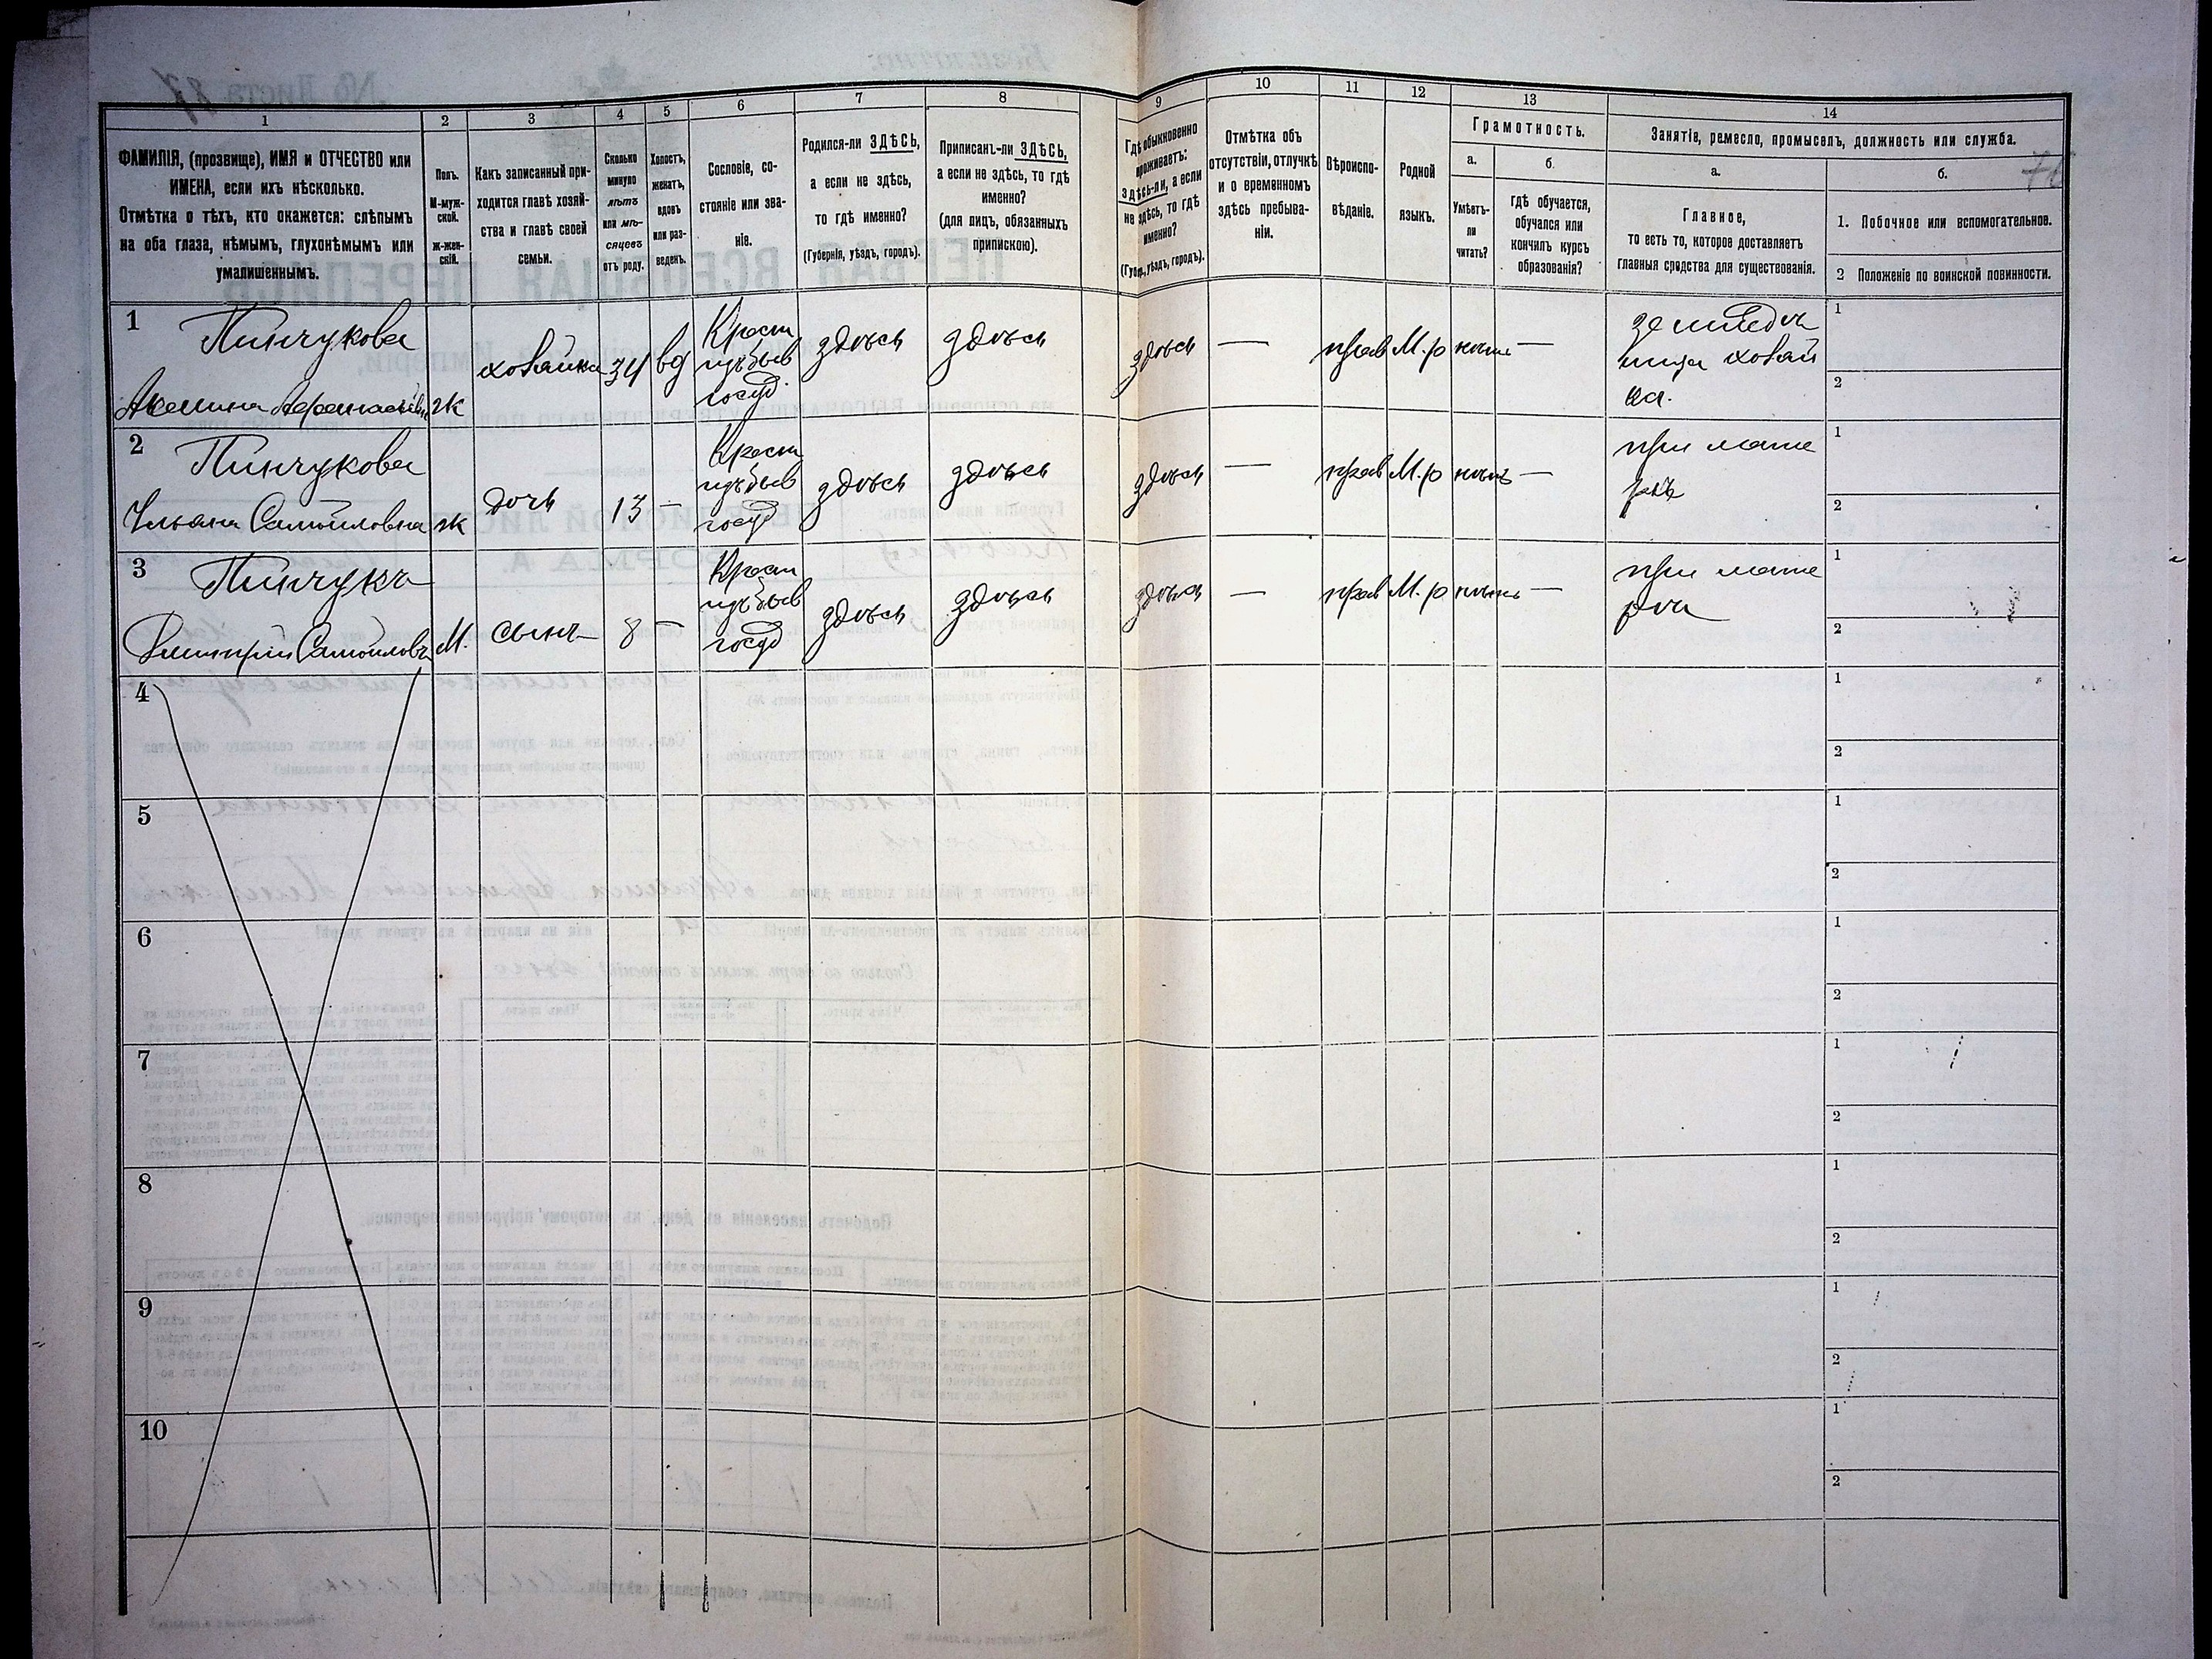 1
2
3
4
5
6
7
8
9
10
11
12
13
14
ФАМИЛІЯ, (прозвище), ИМЯ и ОТЧЕСТВО или
ИМЕНА, если ихъ нѣсколько.
Отмѣтка о тѣхъ, кто окажется: слѣпымъ
на оба глаза, нѣмымъ, глухонѣмымъ или
умалишеннымъ.
Полъ.
М-муж-
ской.
ж-жен-
скій.
Какъ записанный при-
ходится главѣ хозяй-
ства и главѣ своей
семьи.
Сколько
минуло
лѣтъ
или мѣ-
сяцевъ
отъ роду.
Холостъ,
женатъ,
вдовъ
или раз-
веденъ.
Сословіе, со-
стояніе или зва-
ніе.
Родился-ли ЗДѢСЬ,
а если не здѣсь,
то гдѣ именно?
(Губернія, уѣздъ, городъ).
Приписанъ-ли ЗДѢСЬ,
а если не здѣсь, то гдѣ
именно?
(для лицъ, обязанныхъ
припискою).
Гдѣ обыкновенно
проживаетъ:
здѣсь-ли, а если
не здѣсь, то гдѣ
именно?
(Губер., уѣздъ, городъ).
Отмѣтка объ
отсутствіи, отлучкѣ
и о временномъ
здѣсь пребыва-
ніи.
Вѣроиспо-
вѣданіе.
Родной
языкъ.
Грамотность.
а.
Умѣетъ-
ли
читать?
б.
гдѣ обучается,
обучался или
кончилъ курсъ
образованія?
Занятіе, ремесло, промыселъ, должность или служба.
а.
Главное,
то есть то, которое доставляетъ
главныя средства для существованія.
б.
1. Побочное или вспомогательное.
2 Положеніе по воинской повинности.
1
Пинчукова
Акелина
ж
хозайка
34
вд
Крест
изъ быв
госуд
здѣсь
здѣсь
здѣсь
—
прав
М. р
нѣтъ
—
1
2
2
Пинчукова
Ульяна Самойловна
ж
дочь
13
—
Крест
изъ быв
госуд
здѣсь
здѣсь
здѣсь
—
прав
М. р
нѣтъ
—
при мате
рѣ
1
2
3
Пинчукъ
Дмитрій Самойловъ
М.
сынъ
8
—
Крест
изъ быв
госуд
здѣсь
здѣсь
здѣсь
—
прав
М. р
нѣтъ
—
при мате
рѣ
1
2
4
1
2
5
1
2
6
1
2
7
1
2
8
1
2
9
1
2
10
1
2